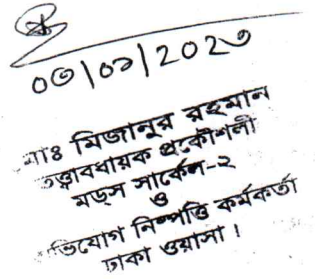 ০৩/০১/202৩
মোঃ মিজানুর রহমান
তত্ত্বাবধায়ক প্রকৌশলী
মডস সার্কেল-২
ও
অভিযোগ নিষ্পত্তি কর্মকর্তা
ঢাকা ওয়াসা।